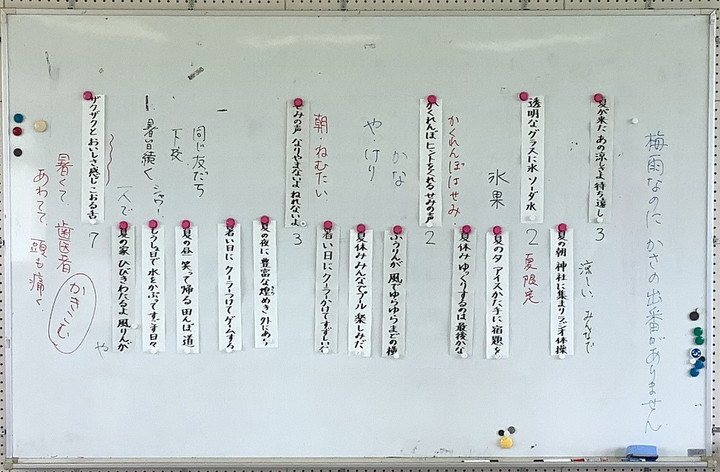 梅雨なのに かさの出番がありません
夏が来た あの涼しさよ 待ち遠し
3
涼しい みんなで
夏の朝 神社に集まり ラジオ体操
透明な グラスに氷 ソーダ水
2
夏限定
氷菓
夏の夕 アイスかた手に 宿題を
かくれんぼはせみ
夏休み ゆっくりするのは 最後かな
かくれんぼ ヒントをくれる せみの声
2
かな
ふうりんが 風でゆらゆら まどの横
や・けり
夏休み みんなでプール 楽しみだ
朝・ねむたい
暑い日に クーラーかけて すずしいな
せみの声 なりやまないよ ねれないよ
3
夏の夜に 豊富な煌めき
暑い日に クーラーつけて ゲームする
同じ友だち
下校
夏の昼 笑って帰る 田んぼ道
暑い日続く
シャワー
一人で
夏の家 ひびきわたるよ 風りんが
や
ザクザクと おいしさ感じ こおる舌
7
かきこむ
暑くて 歯医者
あわてて 頭も痛く